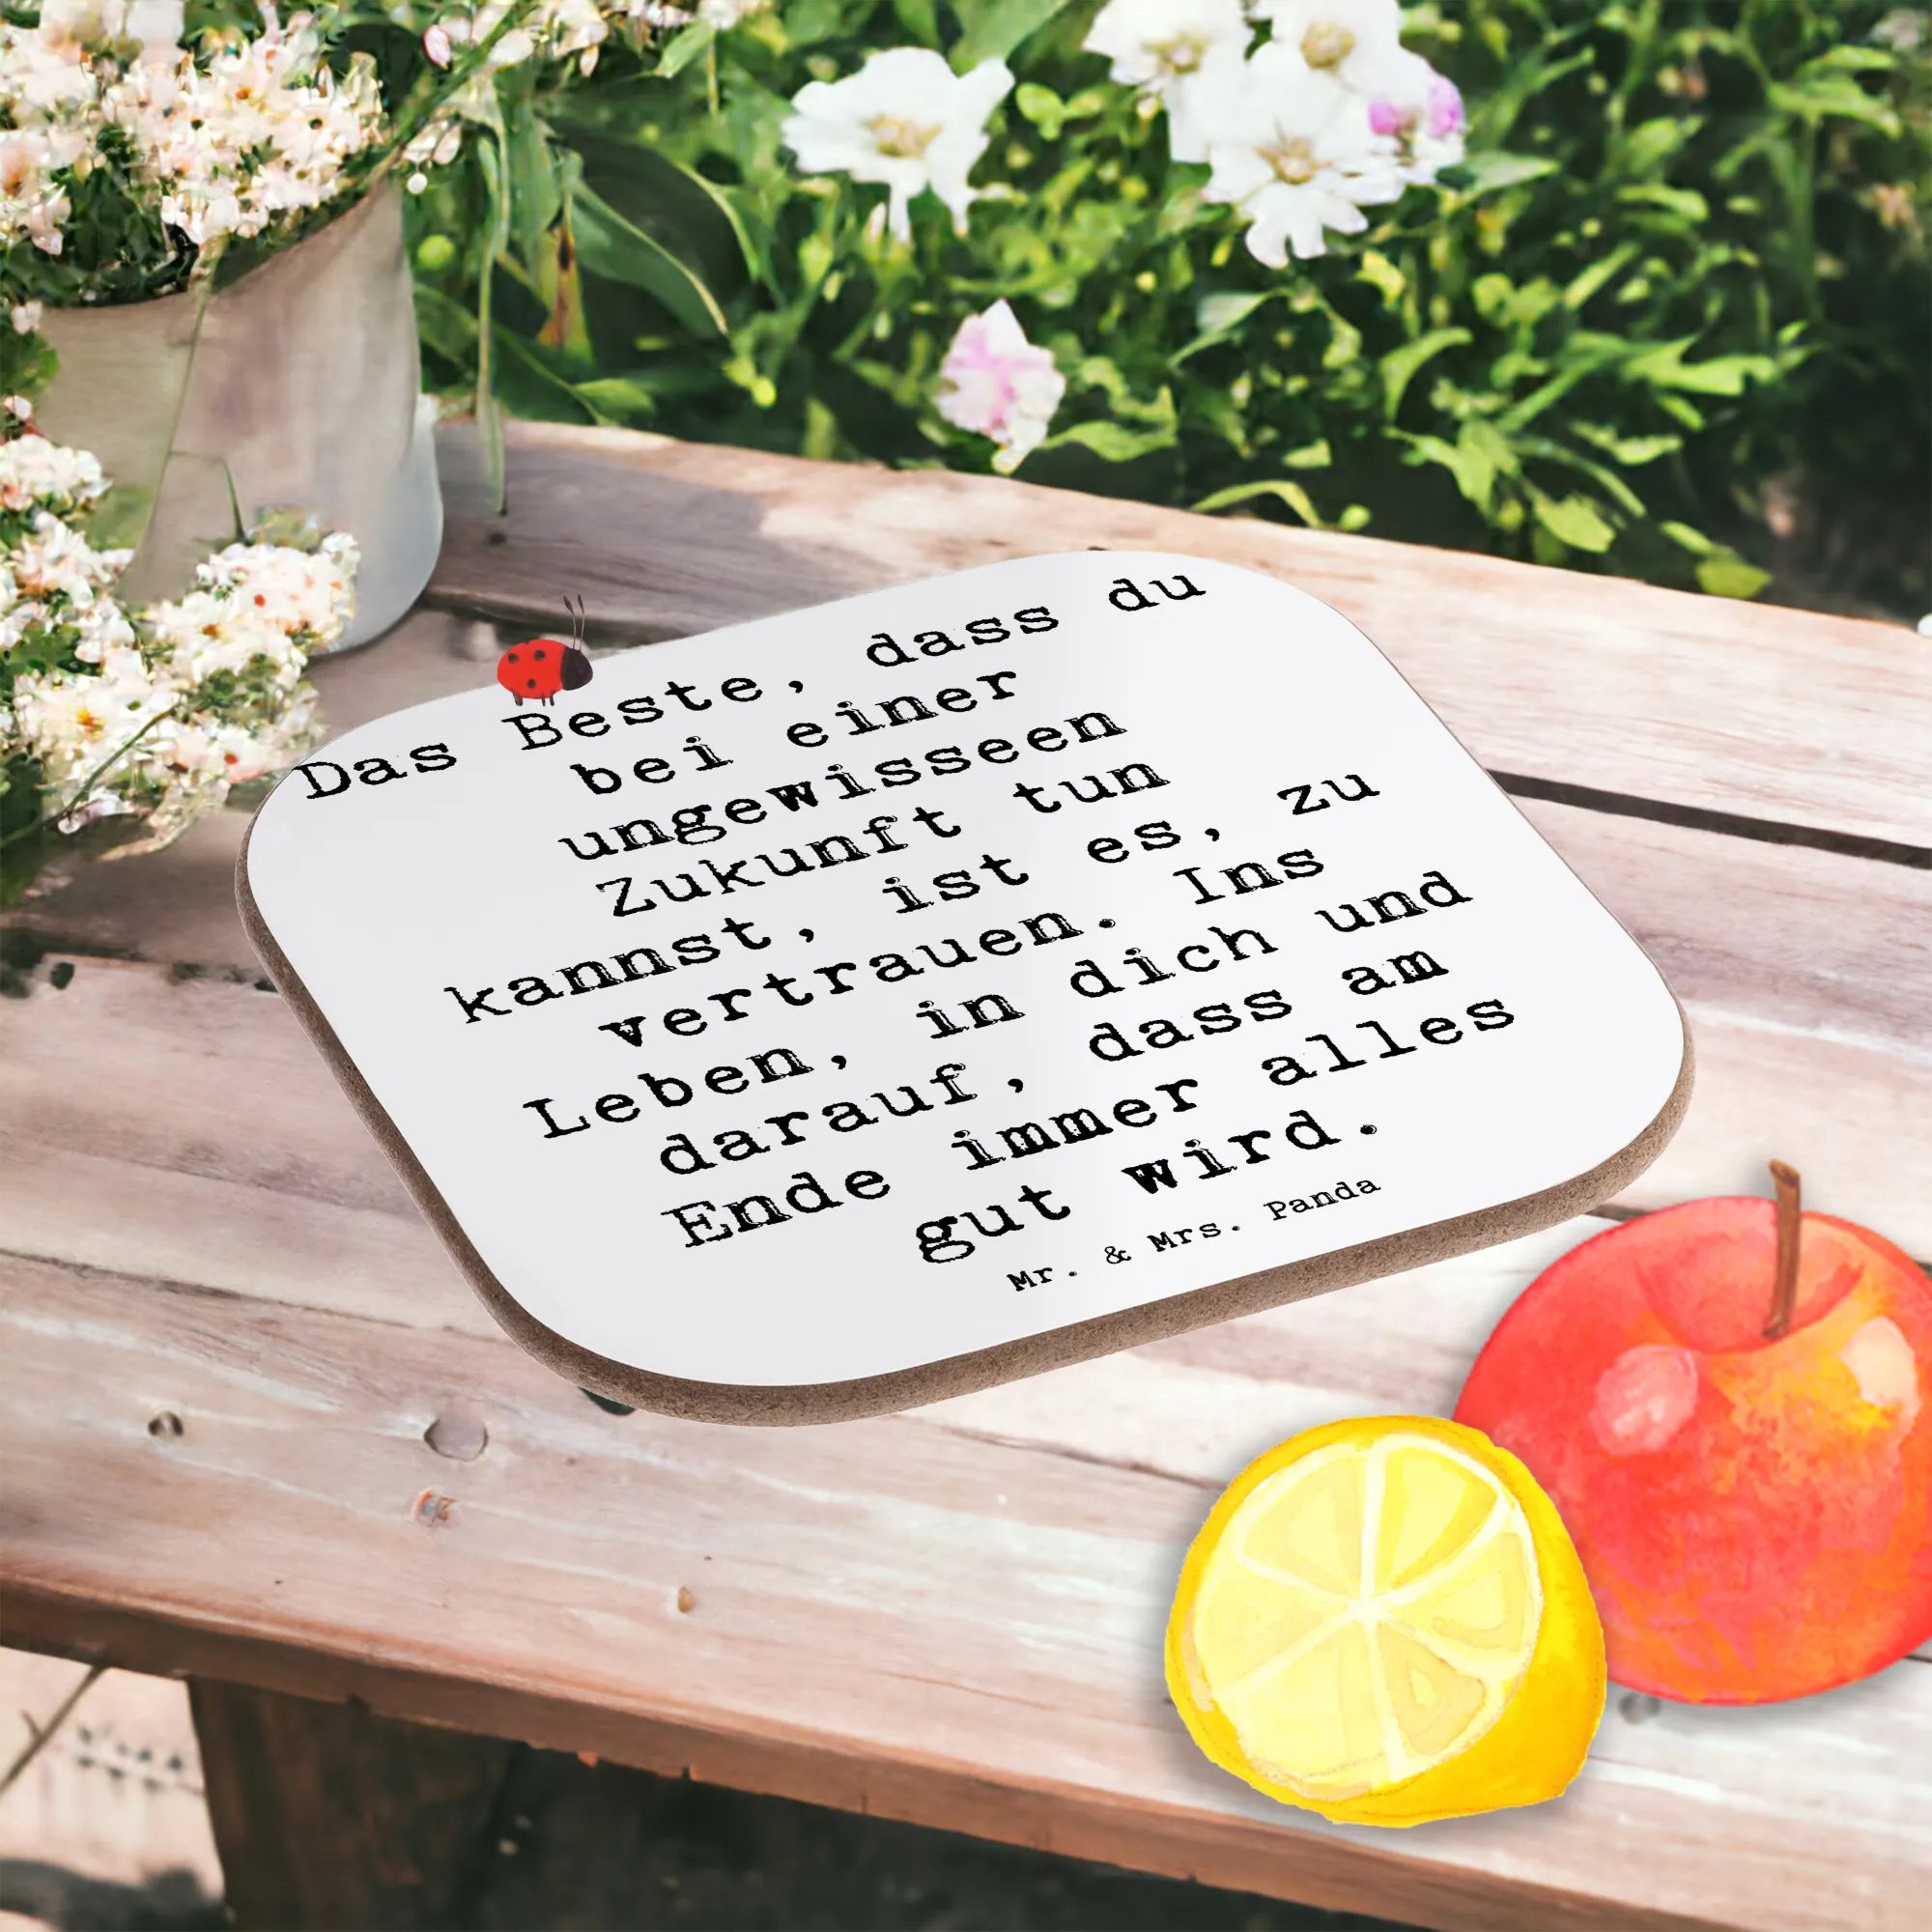 Das Beste, dass du
bei einer
ungewisseen
Zukunft tun
kannst, ist es, zu
vertrauen. Ins
Leben, in dich und
darauf, dass am
Ende immer alles
gut wird.
Mr. & Mrs. Panda